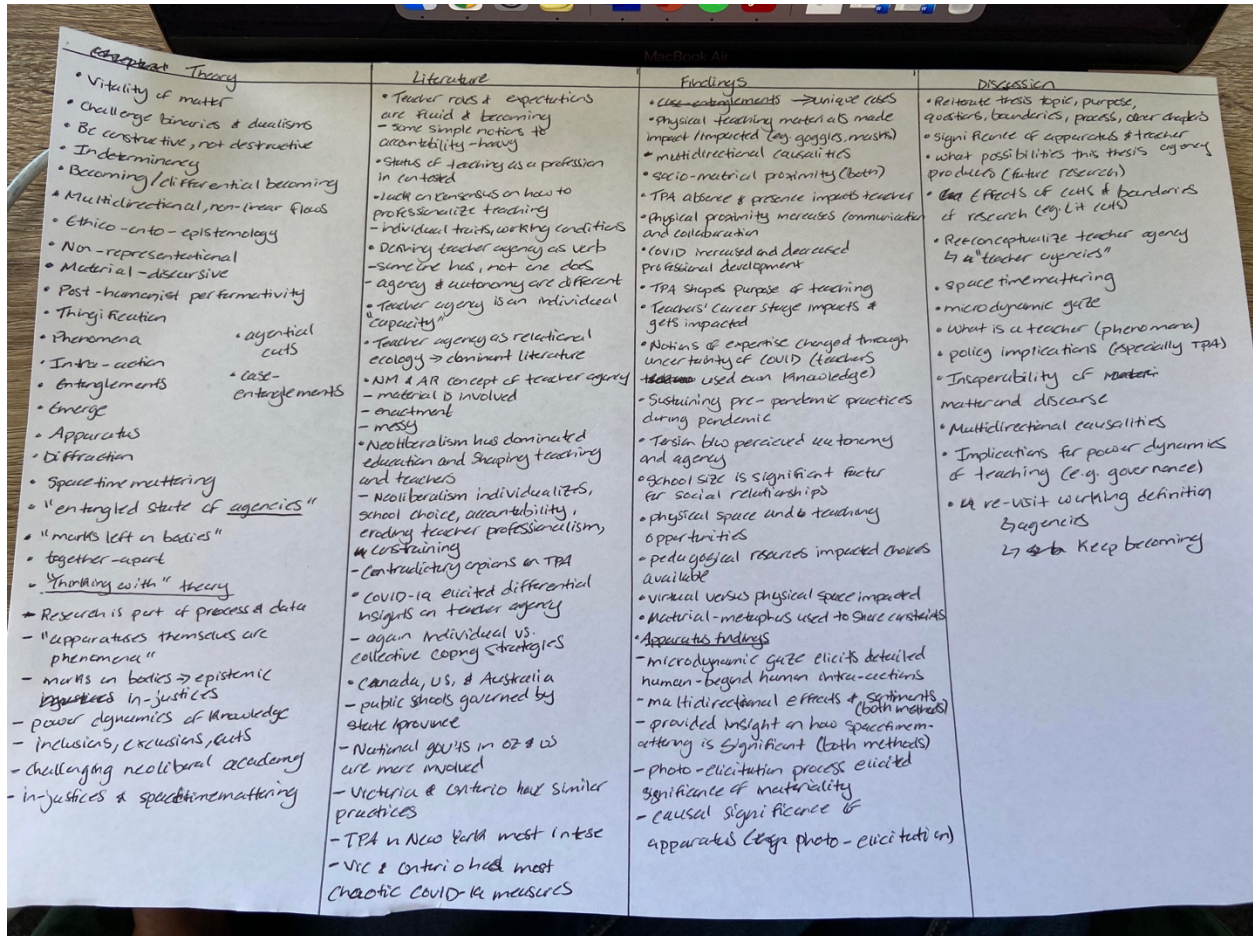 MacBook Air
Theory
• Vitality of matter
• Challenge binaries & dualisms
• Be constructive, not destructive
• Indeterminency
• Becoming/differential becoming
• Multidirectional, non-linear flows
• Ethico-onto-epistemology
• Non-representational
• Material-discursive
• Post-humanist performativity
• Thingification
• Phenomena
• Intra-action
• Entanglements
• Emerge
• Apparatus
• Diffraction
• Spacetimemattering
• "entangled state of agencies"
• "marks left on bodies"
• together-apart
• "Thinking with" theory
- Research is part of process & data
- "apparatuses themselves are
phenomena"
- marks on bodies → epistemic
in-justices
- power dynamics of knowledge
- inclusions, exclusions, cuts
- challenging neoliberal academy
- in-justices & spacetimemattering
• agential
cuts
• case-
entanglements
Literature
• Teacher roles & expectations
are fluid & becoming
- some simple notions to
accountability-heavy
• Status of teaching as a profession
in contested
• Lack on consensus on how to
professionalize teaching
- individual traits, working conditions
• Defining teacher agency as verb
- someone has, not one does
- agency & autonomy are different
• Teacher agency is an individual
"capacity"
• Teacher agency as relational
ecology → dominant literature
• NM & AR concept of teacher agency
- material is involved
- enactment
- messy
• Neoliberalism has dominated
education and shaping teaching
and teachers
- Neoliberalism individualizes,
school choice, accountability,
eroding teacher professionalism,
constraining
- Contradictory opinions on TPA
• COVID-19 elicited differential
insights on teacher agency
- again individual vs.
collective coping strategies
• Canada, US, & Australia
- public schools governed by
state/province
- National gov'ts in OZ & US
are more involved
- Victoria & Ontario have similar
practices
- TPA in New York most intese
- Vic & Ontario had most
chaotic COVID-19 measures
Findings
• case-entanglements → unique cases
• Physical teaching materials made
impact/impacted (eg. goggles, masks)
• multidirectional causalities
• socio-matrical proximity (both)
• TPA absence & presence impacts teacher
• Physical proximity increases communication
and collaboration
• COVID increased and decreased
professional development
• TPA shapes purpose of teaching
• Teachers' career stage impacts &
gets impacted
• Notions of expertise changed through
uncertainty of COVID (teachers
used own knowledge)
• Sustaining pre-pandemic practices
during pandemic
• Tension btw percieved autonomy
and agency
• School size is significant factor
for social relationships
• physical space and teaching
opportunities
• pedagogical resources impacted choices
available
• virtual versus physical space impacted
• Material-metaphors used to share constraints
• Apparatus findings
- microdynamic gaze elicits detailed
human-beyond human intra-actions
- multidirectional effects & sentiments
(both methods)
- provided insight on how spacetimem-
attering is significant (both methods)
- photo-elicitation process elicited
significance of materiality
- causal significance of
apparatus (photo-elicitation)
Discussion
• Reiterate thesis topic, purpose,
questions, boundaries, process, other chapters
• Significance of apparatus & teacher
agency
• what possibilities this thesis
produces (future research)
• Effects of cuts & boundaries
of research (eg. Lit cuts)
• Re-conceptualize teacher agency
↳ "teacher agencies"
• spacetimemattering
• microdynamic gaze
• What is a teacher (phenomena)
• policy implications (especially TPA)
• Inseperability of
matter and discourse
• Multidirectional causalities
• Implications for power dynamics
of teaching (e.g. governance)
• re-visit working definition
↳ agencies
↳ Keep becoming